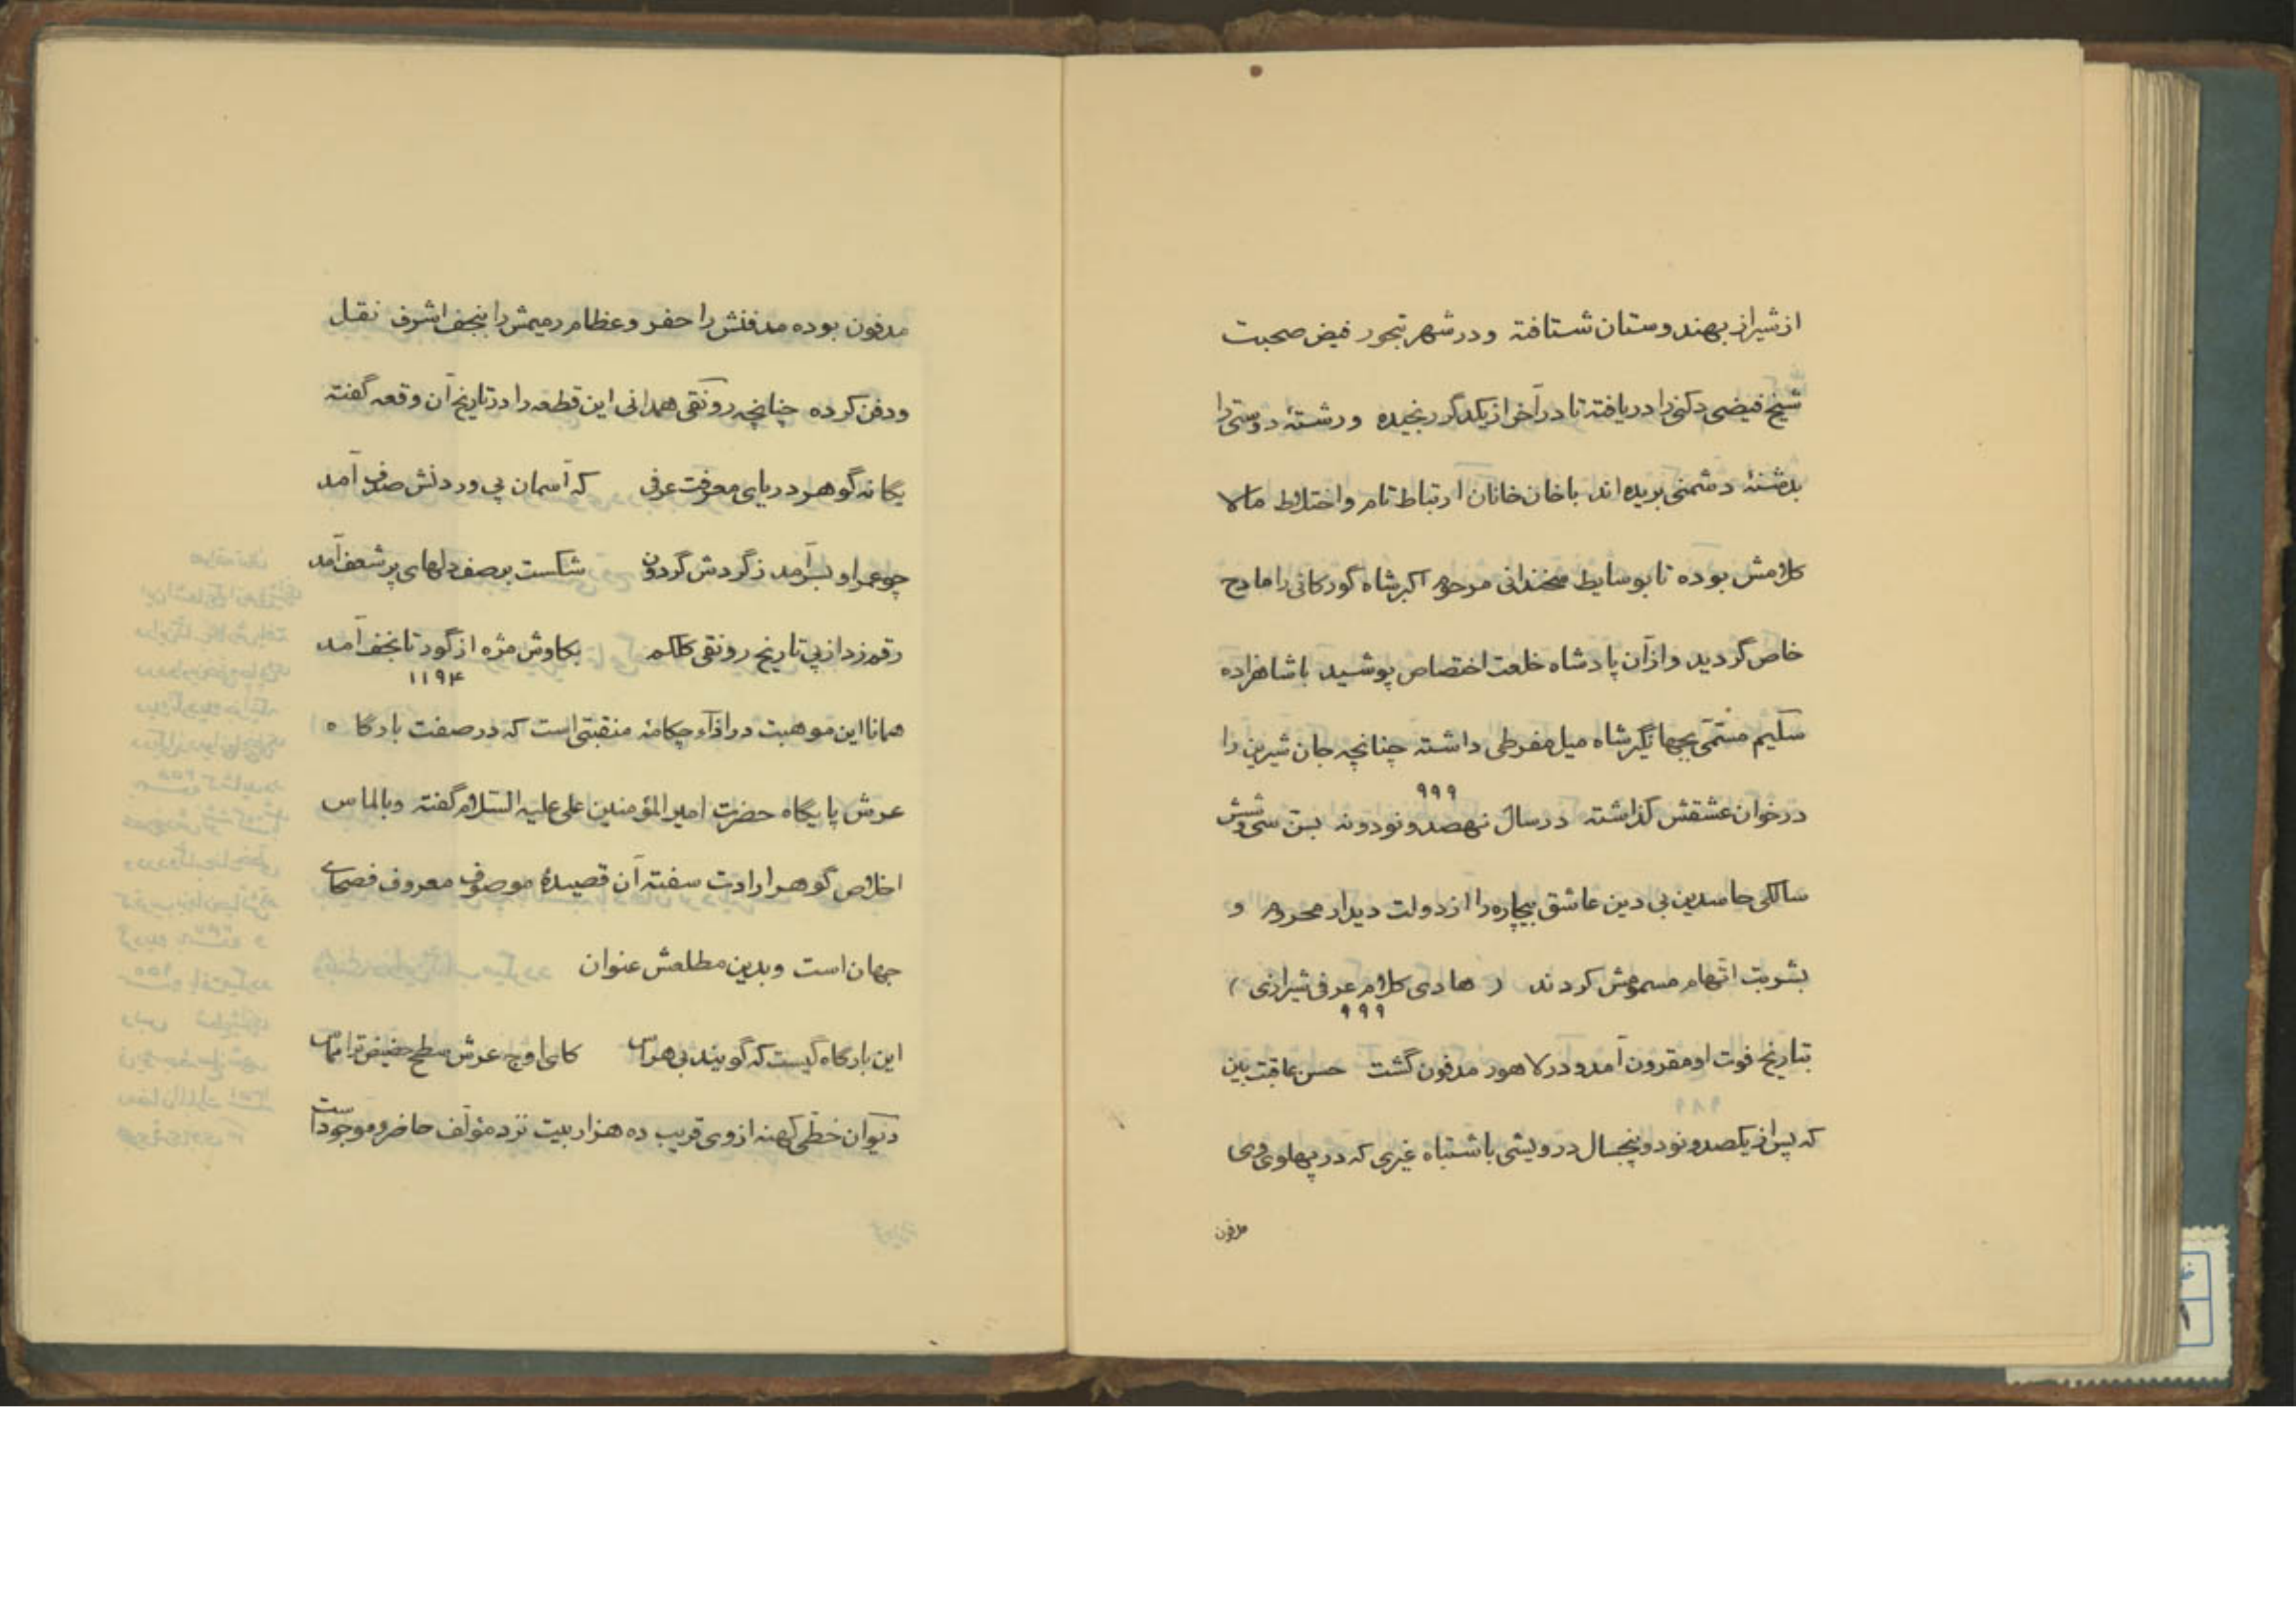 از شیراز بهندوستان شتافته و در شهر تجور فیض صحبت
شیخ فیضی دکنی را دریافته تا در آخر از یکدگر رنجیده و رشتهٔ دوستی را
بدشنهٔ دشمنی بریده‌اند با خان خانان ارتباط تام و اختلاط مالا
کلامش بوده تا بوسایط سخندانی مرحوم اکبر شاه گورکانی را مادح
خاص گردید و از آن پادشاه خلعت اختصاص پوشید با شاهزاده
سلیم مسمّی بجهانگیر شاه میل مفرطی داشته چنانچه جان شیرین را
۹۹۹
در خوان عشقش گذاشته در سال نهصد و نود و نه بسن سی و شش
سالگی حاسدین بی دین عاشق بیچاره را از دولت دیدار محروم و
بشربت اتهام مسمومش کردند ( هادی کلام عرفی شیرازی )
۹۹۹
بتاریخ فوت او مقرون آمد و در لاهور مدفون گشت حسن عاقبت بین
که پس از یکصد و نود و پنجسال درویشی باشتباه غیری که در پهلوی وی
مدفون
مدفون بوده مدفنش را حفر و عظام رمیمش را بنجف اشرف نقل
و دفن کرده چنانچه رونقی همدانی این قطعه را در تاریخ آن وقعه گفته
یگانه گوهر دریای معرفت عرفی که آسمان پی وردنش صدف آمد
چو عمر او بسر آمد ز گردش گردون شکست بر صف دلهای پر شعف آمد
رقم زد از پی تاریخ رونقی کلکم بکاوش مژه از گور تا نجف آمد
۱۱۹۴
همانا این موهبت در ازآء چکامهٔ منقبتی است که در صفت بارگاه
عرش پایگاه حضرت امیر المؤمنین علی علیه السّلام گفته و بالماس
اخلاص گوهر ارادت سفته آن قصیدهٔ موصوف معروف فصحای
جهان است و بدین مطلعش عنوان
این بارگاه کیست که گویند بی هراس کای اوج عرش سطح حضیض ترا مماس
دیوان خطّی کهنه از وی قریب ده هزار بیت نزد مؤلف حاضر و موجود است